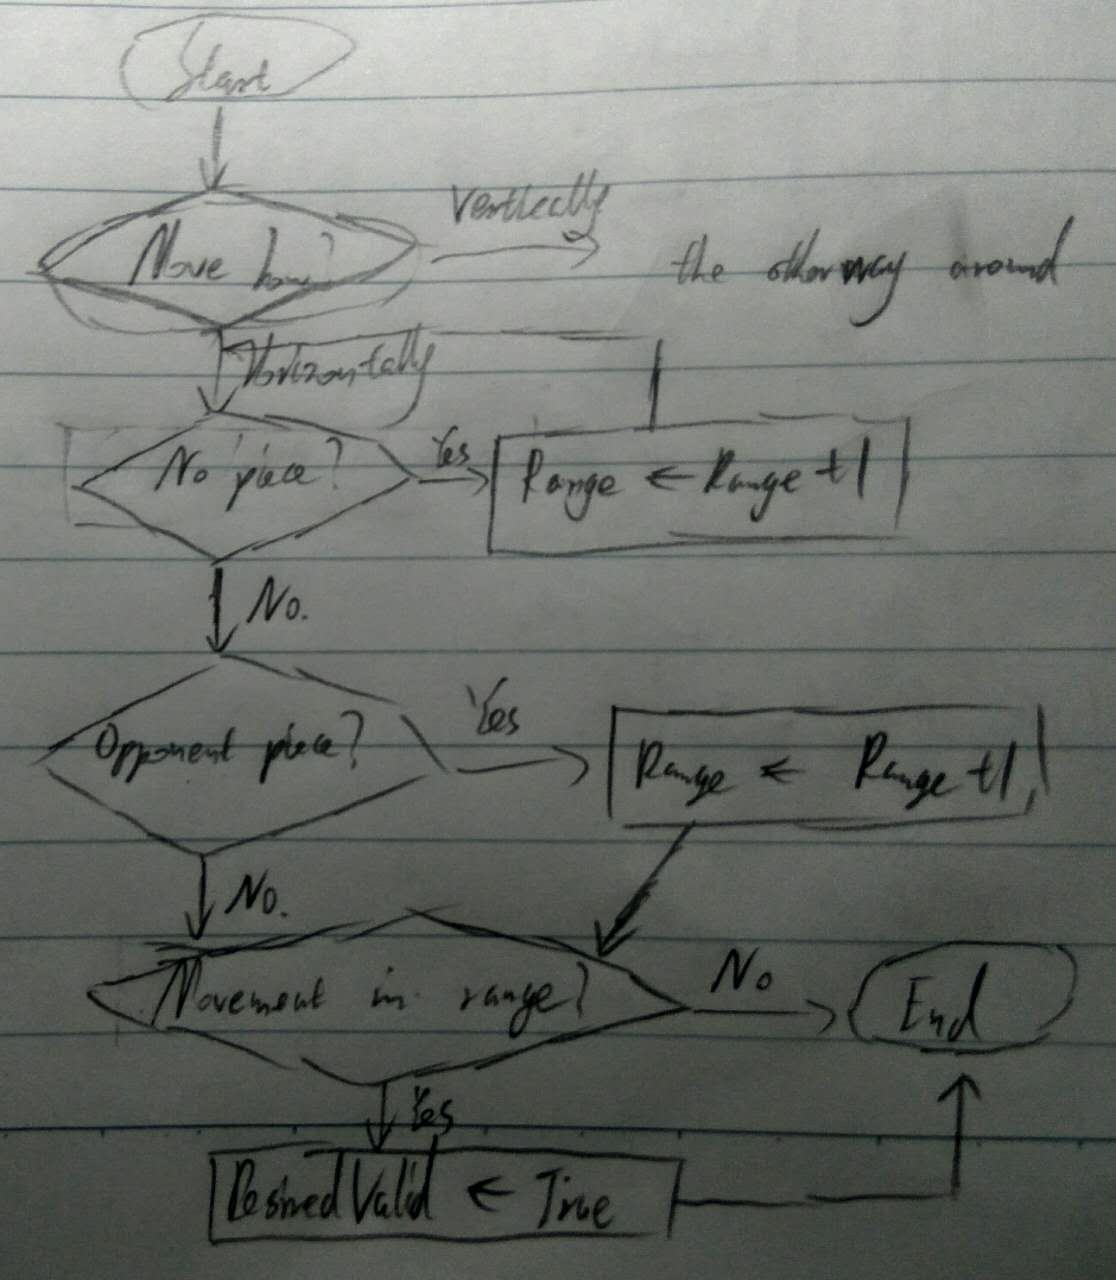 Start
Move how?
Vertically
the otherway around
Horizontally
No piece?
Yes
Range ← Range +1
No.
Opponent piece?
Yes
Range ← Range +1
No.
Movement in range?
No
End
Yes
DesiredValid ← True